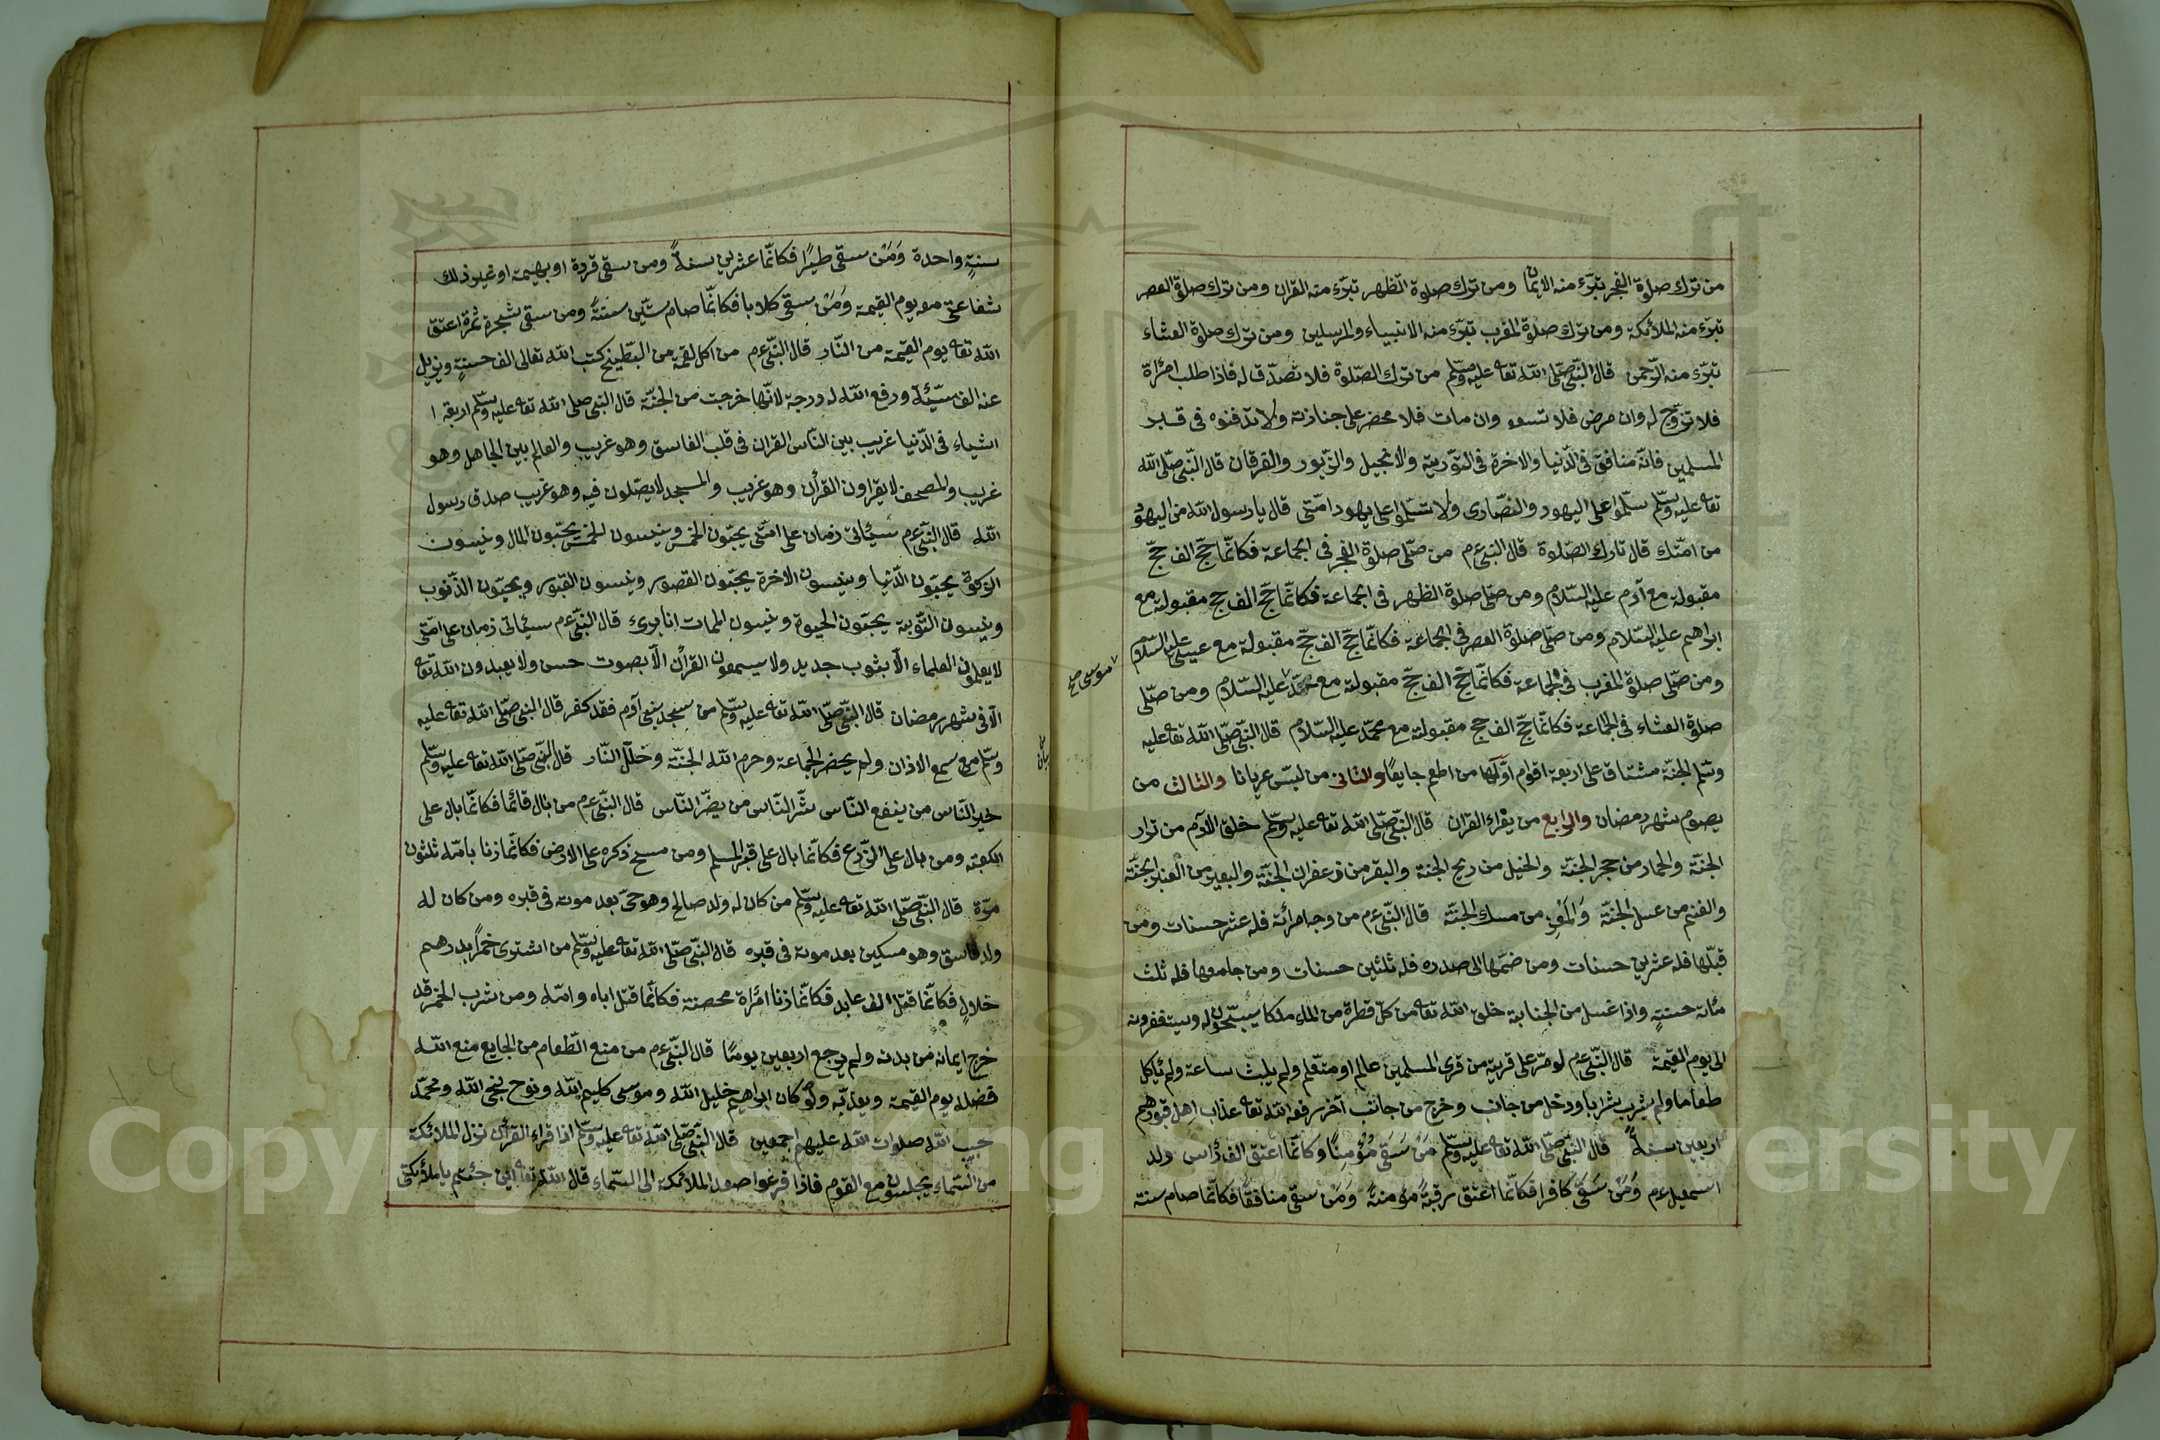 من ترك صلوة الفجر تبرّء منه الايمان ومن ترك صلوة الظهر تبرّء منه القران ومن ترك صلوة العصر
تبرّء منه الملائكة ومن ترك صلوة المغرب تبرّء منه الانبياء والمرسلين ومن ترك صلوة العشاء
تبرّء منه الرّحمن قال النّبى صلّى اللّه تعه عليه وسلّم من ترك الصّلوة فلا تصدّق له فاذا طلب امرأة
فلا تزوّج له وان مرض فلا تسوء وان مات فلا محضر على جنازته ولا تدفنوه فى قبر
المسلمين فانّه منافق فى الدّنيا والاخرة فى التّورية والانجيل والزّبور والفرقان قال النّبى صلّى اللّه
تعه عليه وسلّم سلّموا على اليهود والنّصارى ولا تسلّموا على يهود امّتى قال يا رسول اللّه من اليهود
من امّتك قال تارك الصّلوة قال النّبى عم من صلّى صلوة الفجر فى الجماعة فكانّما حجّ الف حجّ
مقبولة مع آدم عليه السّلام ومن صلّى صلوة الظهر فى الجماعة فكانّما حجّ الف حجّ مقبولة مع
ابراهيم عليه السّلام ومن صلّى صلوة العصر فى الجماعة فكانّما حجّ الف حجّ مقبولة مع عيسى عليه السّلام
ومن صلّى صلوة المغرب فى الجماعة فكانّما حجّ الف حجّ مقبولة مع عليه السّلام ومن صلّى
موسى صح
صلوة العشاء فى الجماعة فكانّما حجّ الف حجج مقبولة مع محمّد عليه السّلام قال النّبى صلّى اللّه تعه عليه
وسلّم الجنّة مشتاق على اربعة اقوام اوّلها من اطعم جايعًا والثانى من لبّس عريانا والثالث من
يصوم شهر رمضان والرابع من يقراء القران قال النّبى صلّى اللّه تعه عليه وسلّم خلق الادم من تراب
الجنّة والحمار من حجر الجنّة والخيل من ريح الجنة والبقر من زعفران الجنّة والبعير من العنبر الجنّة
والغنم من عسل الجنّة من مسك الجنّة قال النّبى عم من وجا مرأته فله عشر حسنات ومن
قبّلها فله عشرين حسنات ومن ضمّها الى صدره فله ثلثين حسنات ومن جامعها فله ثلث
مائة حسنةٍ واذا غسل من الجنابة خلق اللّه تعه من كلّ قطرة من الماء ملكا يسبّحون له ويستغفرونه
الى يوم القيمة قال النّبى عم لو مرّ على قرية من قرى المسلمين عالم او متعلم ولم يلبث ساعة ولم يأكل
طعاما ولم يشرب شرابا ودخل من جانب وخرج من جانب آخر رفع اللّه تعه عذاب اهل قبورهم
اربعين سنةً قال النّبى صلّى اللّه تعه عليه وسلّم مَنْ سَقَى مُؤمِنًا وكانّما اعتق الف رأس ولد
اسمعيل عم وَمَنْ سَقَى كافرا فكانّما اعتق رقبةً مؤمنةً وَمَنْ سقى منافقًا فكانّما صام سنة
سنةٍ واحدة وَمَنْ سقى طيرًا فكانّما عشرين سنةً ومن سقى قردة او بهيمة او غير ذلك
شفاعتى معه يوم القيمة وَمَنْ سقى كلابا فكانّما صام ستّين سنةً ومن سقى شجرة ثمرة اعتق
اللّه تعه يوم القيمة من النّار قال النّبى عم من اكل لقمة من البطّيخ كتب اللّه تعالى الف حسنةٍ ويزيل
عنه الف سيّئة ورفع اللّه له درجة لانّها خرجت من الجنّة قال النّبى صلى اللّه تعه عليه وسلّم اربعة ا
اشياء فى الدّنيا غريب بين النّاس القران فى قلب الفاسق وهو غريب والعالم بين الجاهل وهو
غريب والمصحف لا يقراون القرأن وهو غريب والمسجد لا يصلّون فيه وهو غريب صدق رسول
اللّه قال النّبى عم سيأتى زمان على امّتى يحبّون الخمس وينسون الخمس يحبّون المال وينسون
الزكوة يحبّون الدّنيا وينسون الاخرة يحبّون القصور وينسون القبور ويحبّون الذّنوب
وينسون التّوبة يحبّون الحيوة وينسون الممات انا برئ قال النّبى عم سيأتى زمان على امّتى
لا يعلمون العلماء الّا بثوب جديد ولا يسمعون القرأن الّا بصوت حسن ولا يعبدون اللّه تعه
الّا فى شهر رمضان قال النّبى صلّى اللّه تعه عليه وسلّم من سجد بنى آدم فقد كفر قال النبى صلّى اللّه تعه عليه
وسلّم من سمع الاذان ولم يحضر الجماعة وحرم اللّه الجنّة وحلّل النّار قال النّبى صلّى اللّه تعه عليه وسلّم
خير النّاس من ينفع النّاس شرّ النّاس من يضرّ النّاس قال النّبى عم من بال قائما فكانّما بال على
الكعبة ومن بال على الزّرع فكانّما بال على قبر المسلم ومن مسح ذكره على الارض فكانّما زنا بامّه ثلثون
مرّة قال النّبى صلّى اللّه تعه عليه وسلّم من كان له ولد صالح وهو حىّ بعد موته فى قبره ومن كان له
ولد فاسق وهو مسكين بعد موته فى قبره قال النّبى صلّى اللّه تعه عليه وسلّم من اشترى خمرًا بدرهم
حلالٍ فكانّما قتل الف عابد فكانّما زنا امرأة محصنة فكانّما قتل اباه وامّه ومن شرب الخمر قد
خرج ايمانه من بدنه ولم يرجع اربعين يومًا قال النّبى عم من منع الطّعام من الجايع منع اللّه
فضله يوم القيمة ويعذّبه ولو كان ابراهيم خليل اللّه وموسى كليم اللّه ونوح نجى اللّه ومحمّد
حبيب اللّه صلوات اللّه عليهم اجمعين قال النّبى صلّى اللّه تعه عليه وسلّم اذا قراء القرأن نزل الملائكة
من السّماء يجلسون مع القوم فاذا فرغوا صعد الملائكة الى السّماء قال اللّه تعه اين جئتم يا ملائكتى
Copyright © King University